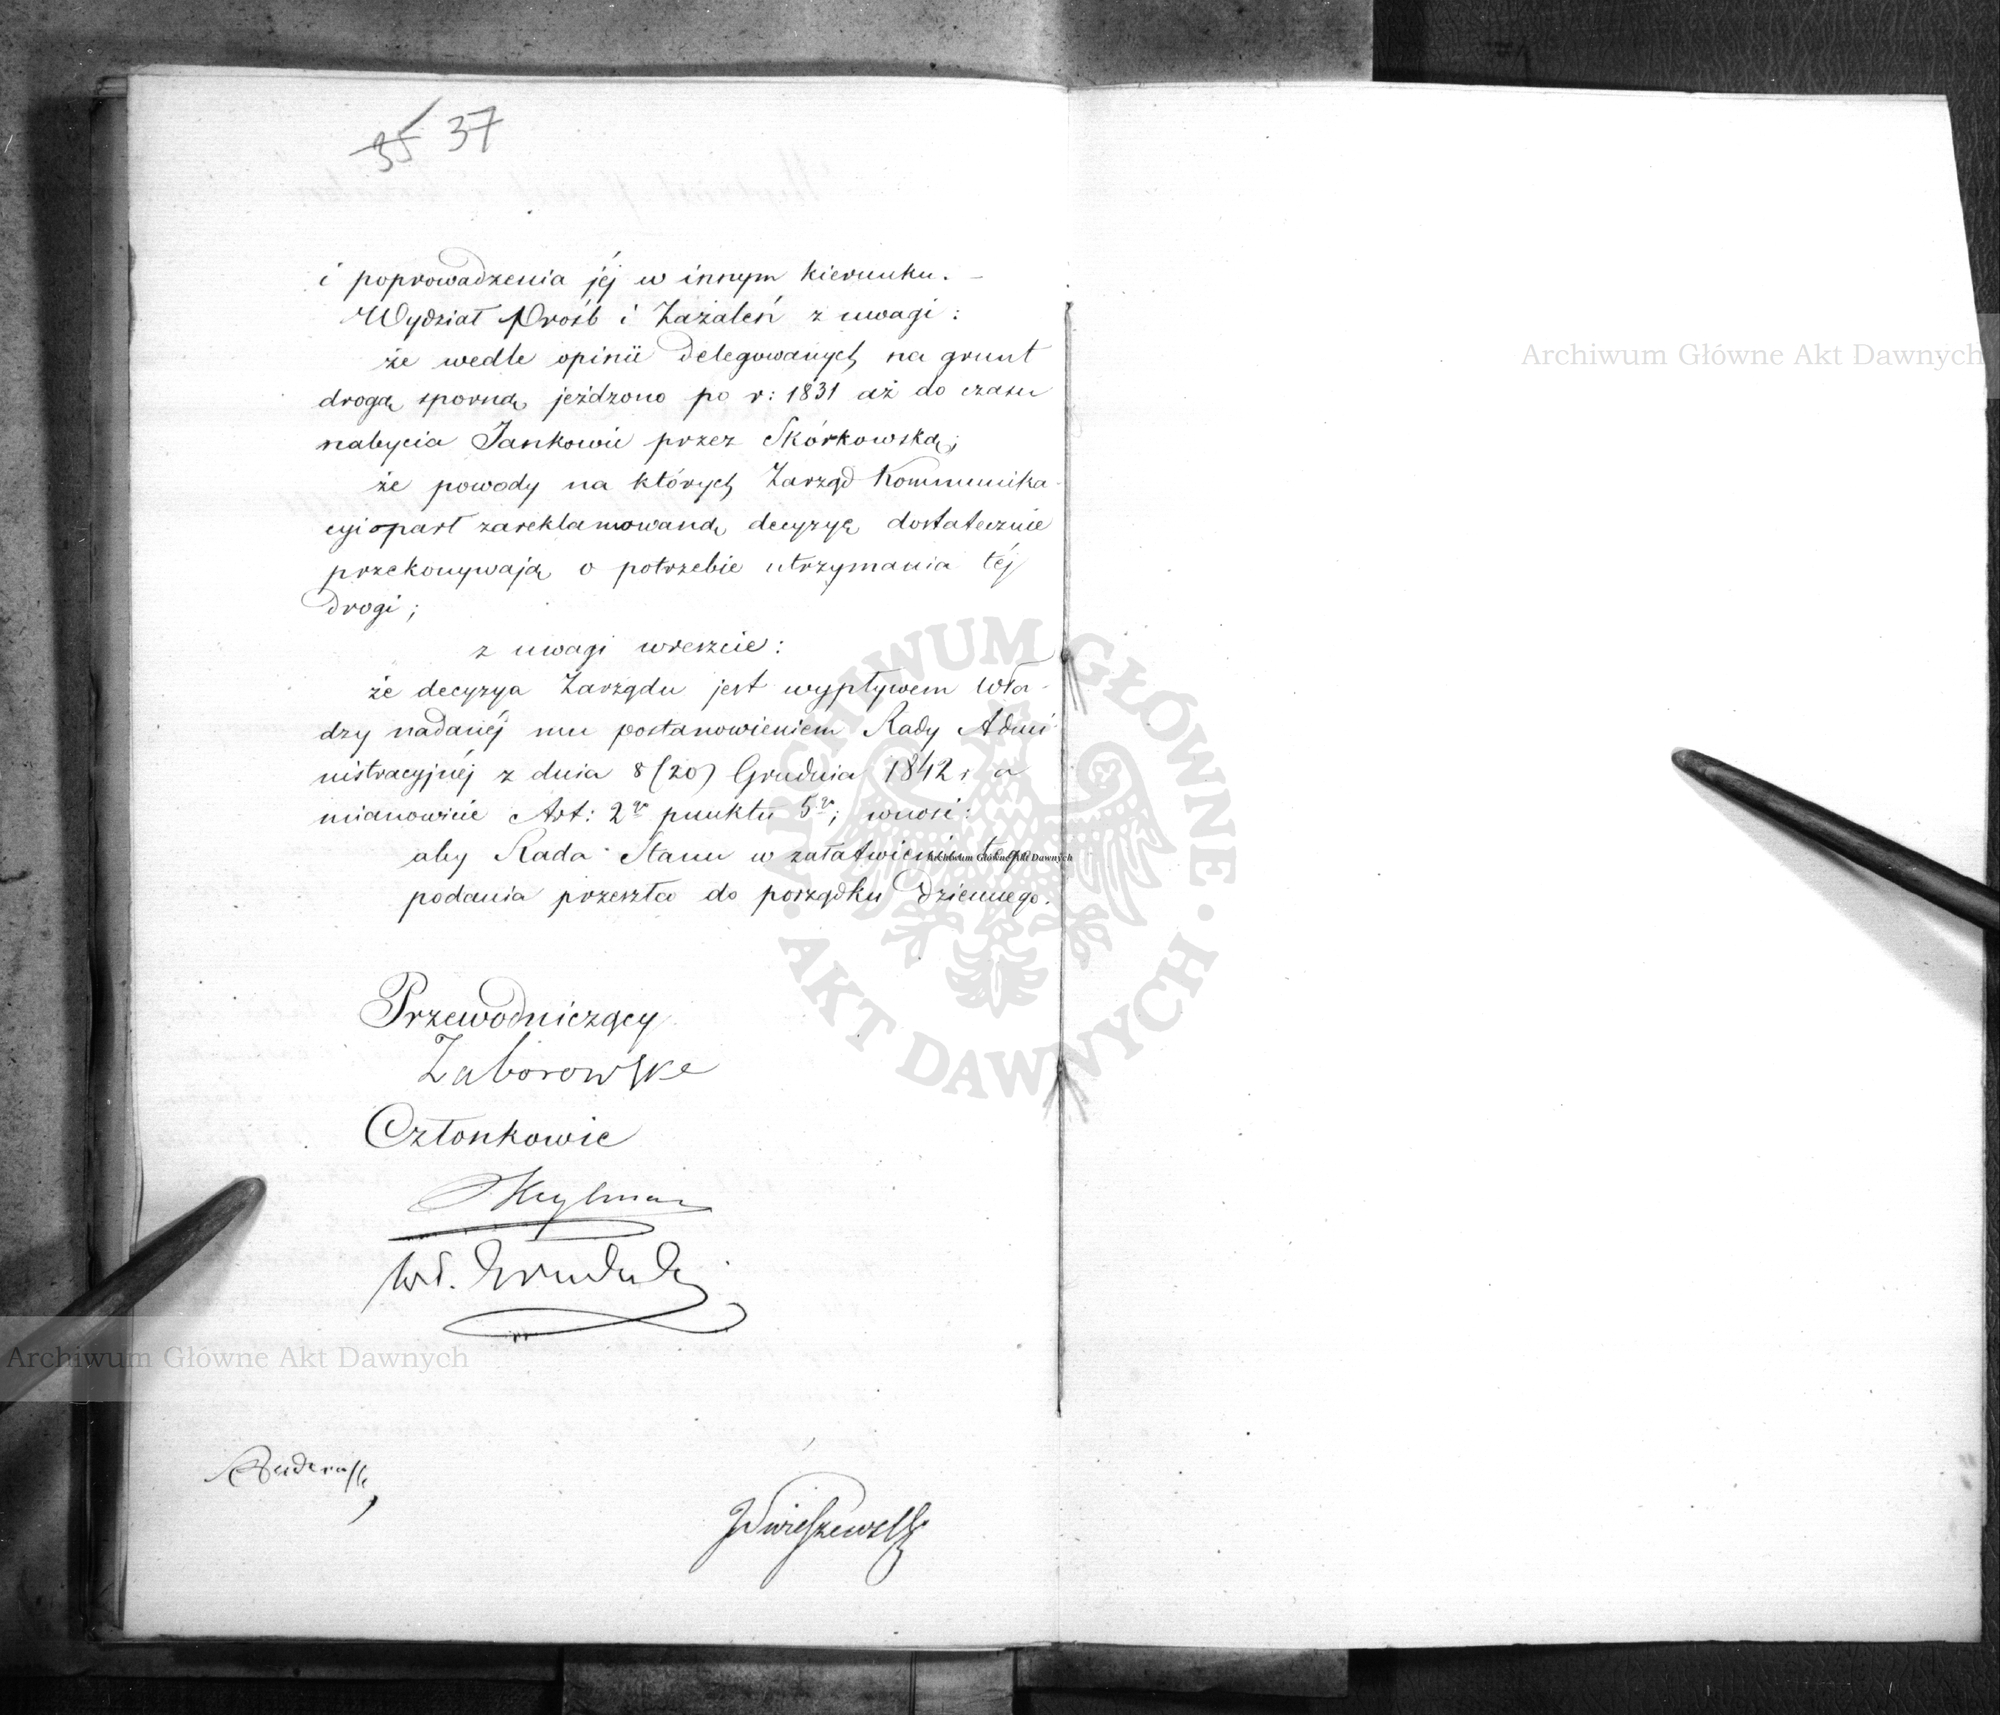 35 37
i poprowadzenia jéj w innym kierunku. –
Wydział Prośb i Zażaleń z uwagi:
że wedle opinii delegowanych na grunt
drogą sporną jeżdzono po r: 1831 aż do czasu
nabycia Jankowic przez Skórkowską;
że powody na których Zarząd Kommunika-
cyi oparł zareklamowaną decyzyę dostatecznie
przekonywają o potrzebie utrzymania téj
drogi;
z uwagi wreszcie:
że decyzya Zarządu jest wypływem Wła-
dzy nadanéj mu postanowieniem Rady Admi-
nistracyjnéj z dnia 8 (20) Grudnia 1842 r a
mianowicie Art: 2º punktu 5º; wnosi:
aby Rada Stanu w załatwieniu tego
podania przeszła do porządku dziennego.
Przewodniczący
Zaborowski
Członkowie
Heylman
Wł.
Archiwum Główne Akt Dawnych
Archiwum Główne Akt Dawnych
Archiwum Główne Akt Dawnych
ARCHIWUM GŁÓWNE
AKT DAWNYCH